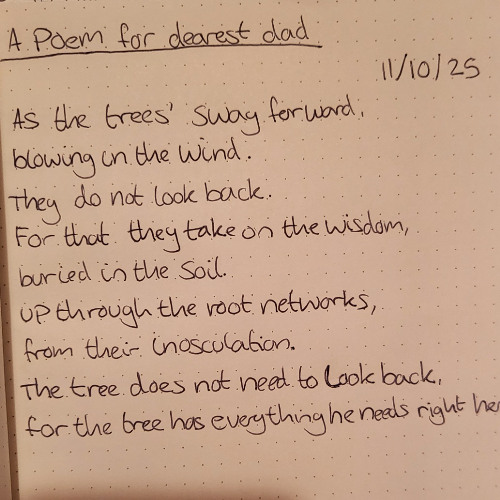 A Poem for dearest dad
11/10/25
As the trees' sway forward,
blowing in the wind.
They do not look back.
For that they take on the wisdom,
buried in the soil.
Up through the root networks,
from their inosculation.
The tree does not need to look back,
for the tree has everything he needs right